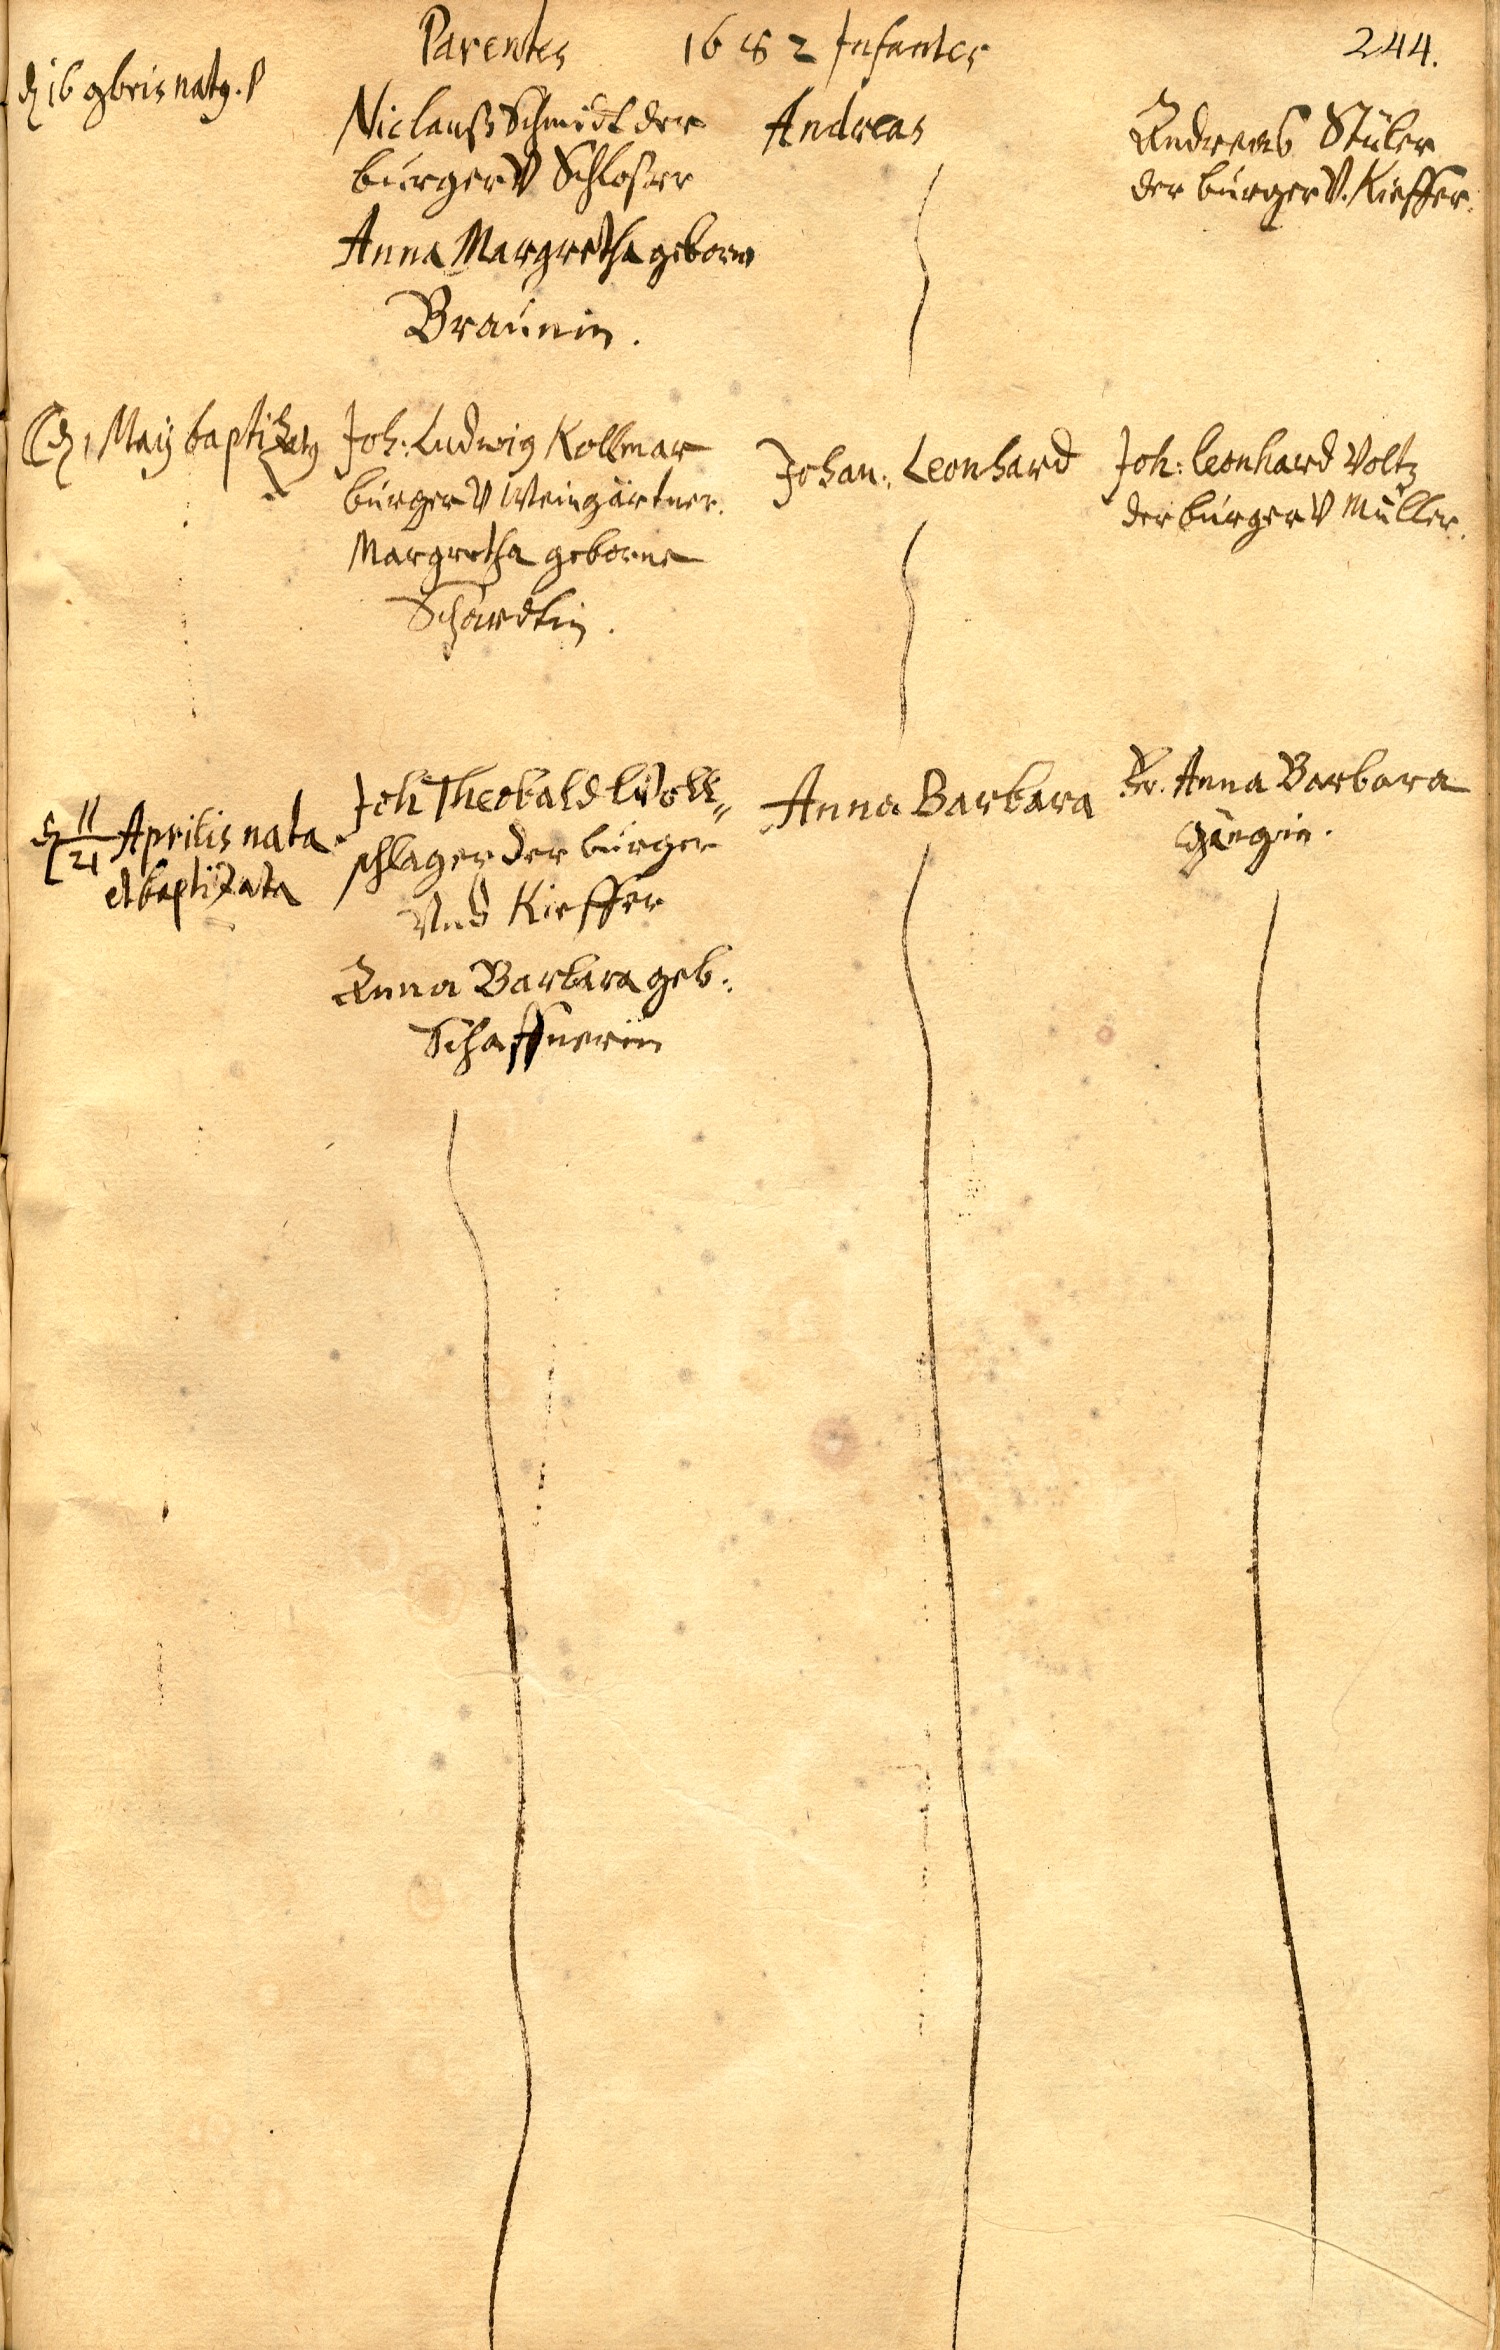 Parentes 1682 Infantes 244.
d 16 9bris natq.
Niclauß Schmidt der
burger V Schloßer
Anna Margretha geborne
Braunin.
Andreas
Andreas Stüler
der burger V. Kieffer.
d 1 Maij baptizatq
Joh: Ludwig Kollmar
burger V Weingärtner.
Margretha geborne
Schärdtin.
Johan: Leonhard
Joh: Leonhard Voltz
der burger V Müller.
d 11/21 Aprilis nata
et baptizata
Joh Theobald Woll„
schlager der burger
Vnd Kieffer
Anna Barbara geb:
Schaffnerin
Anna Barbara
Fr. Anna Barbara